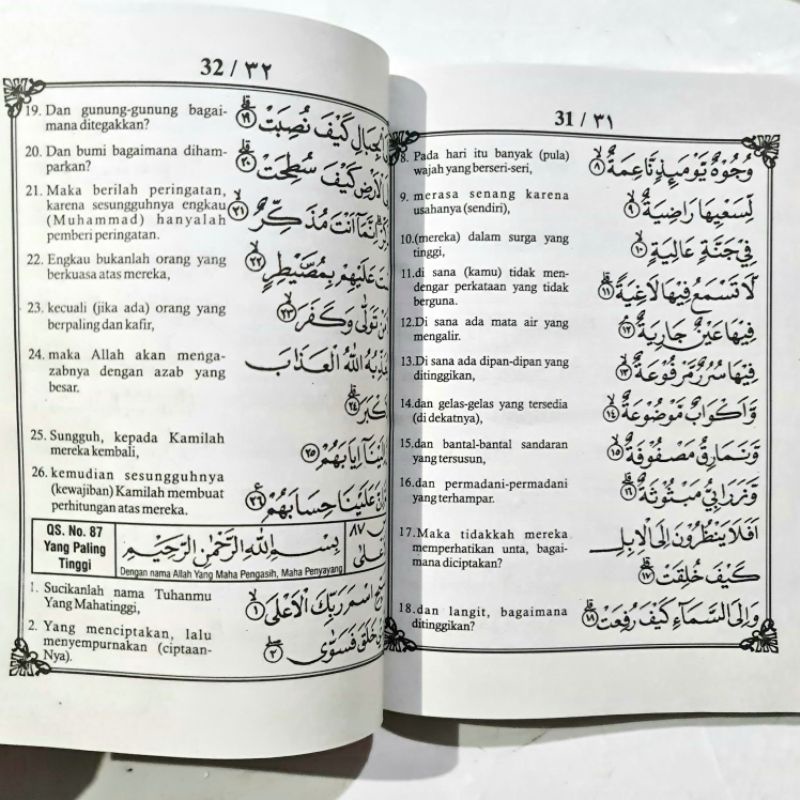 31 / ٣١
8. Pada hari itu banyak (pula)
wajah yang berseri-seri,
وُجُوْهٌ يَّوْمَىِٕذٍ نَّاعِمَةٌ ۙ ٨
9. merasa senang karena
usahanya (sendiri),
لِّسَعْيِهَا رَاضِيَةٌ ۙ ٩
10.(mereka) dalam surga yang
tinggi,
فِيْ جَنَّةٍ عَالِيَةٍ ۙ ١٠
11.di sana (kamu) tidak men-
dengar perkataan yang tidak
berguna.
لَّا تَسْمَعُ فِيْهَا لَاغِيَةً ۗ ١١
12.Di sana ada mata air yang
mengalir.
فِيْهَا عَيْنٌ جَارِيَةٌ ۘ ١٢
13.Di sana ada dipan-dipan yang
ditinggikan,
فِيْهَا سُرُرٌ مَّرْفُوْعَةٌ ۙ ١٣
14.dan gelas-gelas yang tersedia
(di dekatnya),
وَّاَكْوَابٌ مَّوْضُوْعَةٌ ۙ ١٤
15.dan bantal-bantal sandaran
yang tersusun,
وَّنَمَارِقُ مَصْفُوْفَةٌ ۙ ١٥
16.dan permadani-permadani
yang terhampar.
وَّزَرَابِيُّ مَبْثُوْثَةٌ ۗ ١٦
17.Maka tidakkah mereka
memperhatikan unta, bagai-
mana diciptakan?
اَفَلَا يَنْظُرُوْنَ اِلَى الْاِبِلِ
كَيْفَ خُلِقَتْ ۗ ١٧
18.dan langit, bagaimana
ditinggikan?
وَاِلَى السَّمَاۤءِ كَيْفَ رُفِعَتْ ۗ ١٨
32 / ٣٢
19. Dan gunung-gunung bagai-
mana ditegakkan?
الْجِبَالِ كَيْفَ نُصِبَتْ ۗ ١٩
20. Dan bumi bagaimana diham-
parkan?
الْاَرْضِ كَيْفَ سُطِحَتْ ۗ ٢٠
21. Maka berilah peringatan,
karena sesungguhnya engkau
(Muhammad) hanyalah
pemberi peringatan.
اِنَّمَآ اَنْتَ مُذَكِّرٌ ۙ ٢١
22. Engkau bukanlah orang yang
berkuasa atas mereka,
عَلَيْهِمْ بِمُصَيْطِرٍ ۙ ٢٢
23. kecuali (jika ada) orang yang
berpaling dan kafir,
تَوَلّٰى وَكَفَرَ ۙ ٢٣
24. maka Allah akan menga-
zabnya dengan azab yang
besar.
اللّٰهُ الْعَذَابَ
٢٤
25. Sungguh, kepada Kamilah
mereka kembali,
اِيَابَهُمْ ۙ ٢٥
26. kemudian sesungguhnya
(kewajiban) Kamilah membuat
perhitungan atas mereka.
عَلَيْنَا حِسَابَهُمْ ٢٦
QS. No. 87
Yang Paling
Tinggi
بِسْمِ اللّٰهِ الرَّحْمٰنِ الرَّحِيْمِ
٨٧
Dengan nama Allah Yang Maha Pengasih, Maha Penyayang
1. Sucikanlah nama Tuhanmu
Yang Mahatinggi,
اسْمَ رَبِّكَ الْاَعْلَى ۙ ١
2. Yang menciptakan, lalu
menyempurnakan (ciptaan-
Nya).
خَلَقَ فَسَوّٰى ۖ ٢